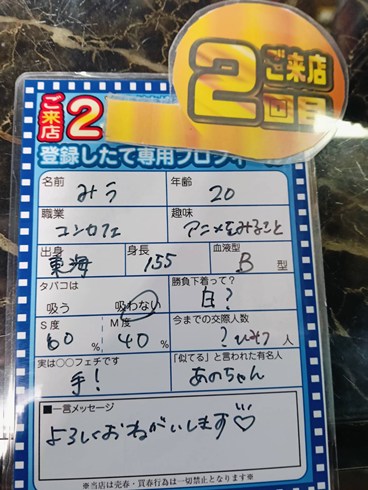 2
ご来店
回目
ご来店
2
登録したて専用プロフィール
名前 みう 年齢 20
職業 コンカフェ 趣味 アニメをみること
出身 東海 身長 155 血液型 B 型
タバコは 勝負下着って?
吸う 吸わない 白?
S度 M度 今までの交際人数
60 % 40 % ? ひみつ 人
実は〇〇フェチです 「似てる」と言われた有名人
手! あのちゃん
■一言メッセージ
よろしくおねがいします♡
※当店は売春・買春行為は一切禁止となります※